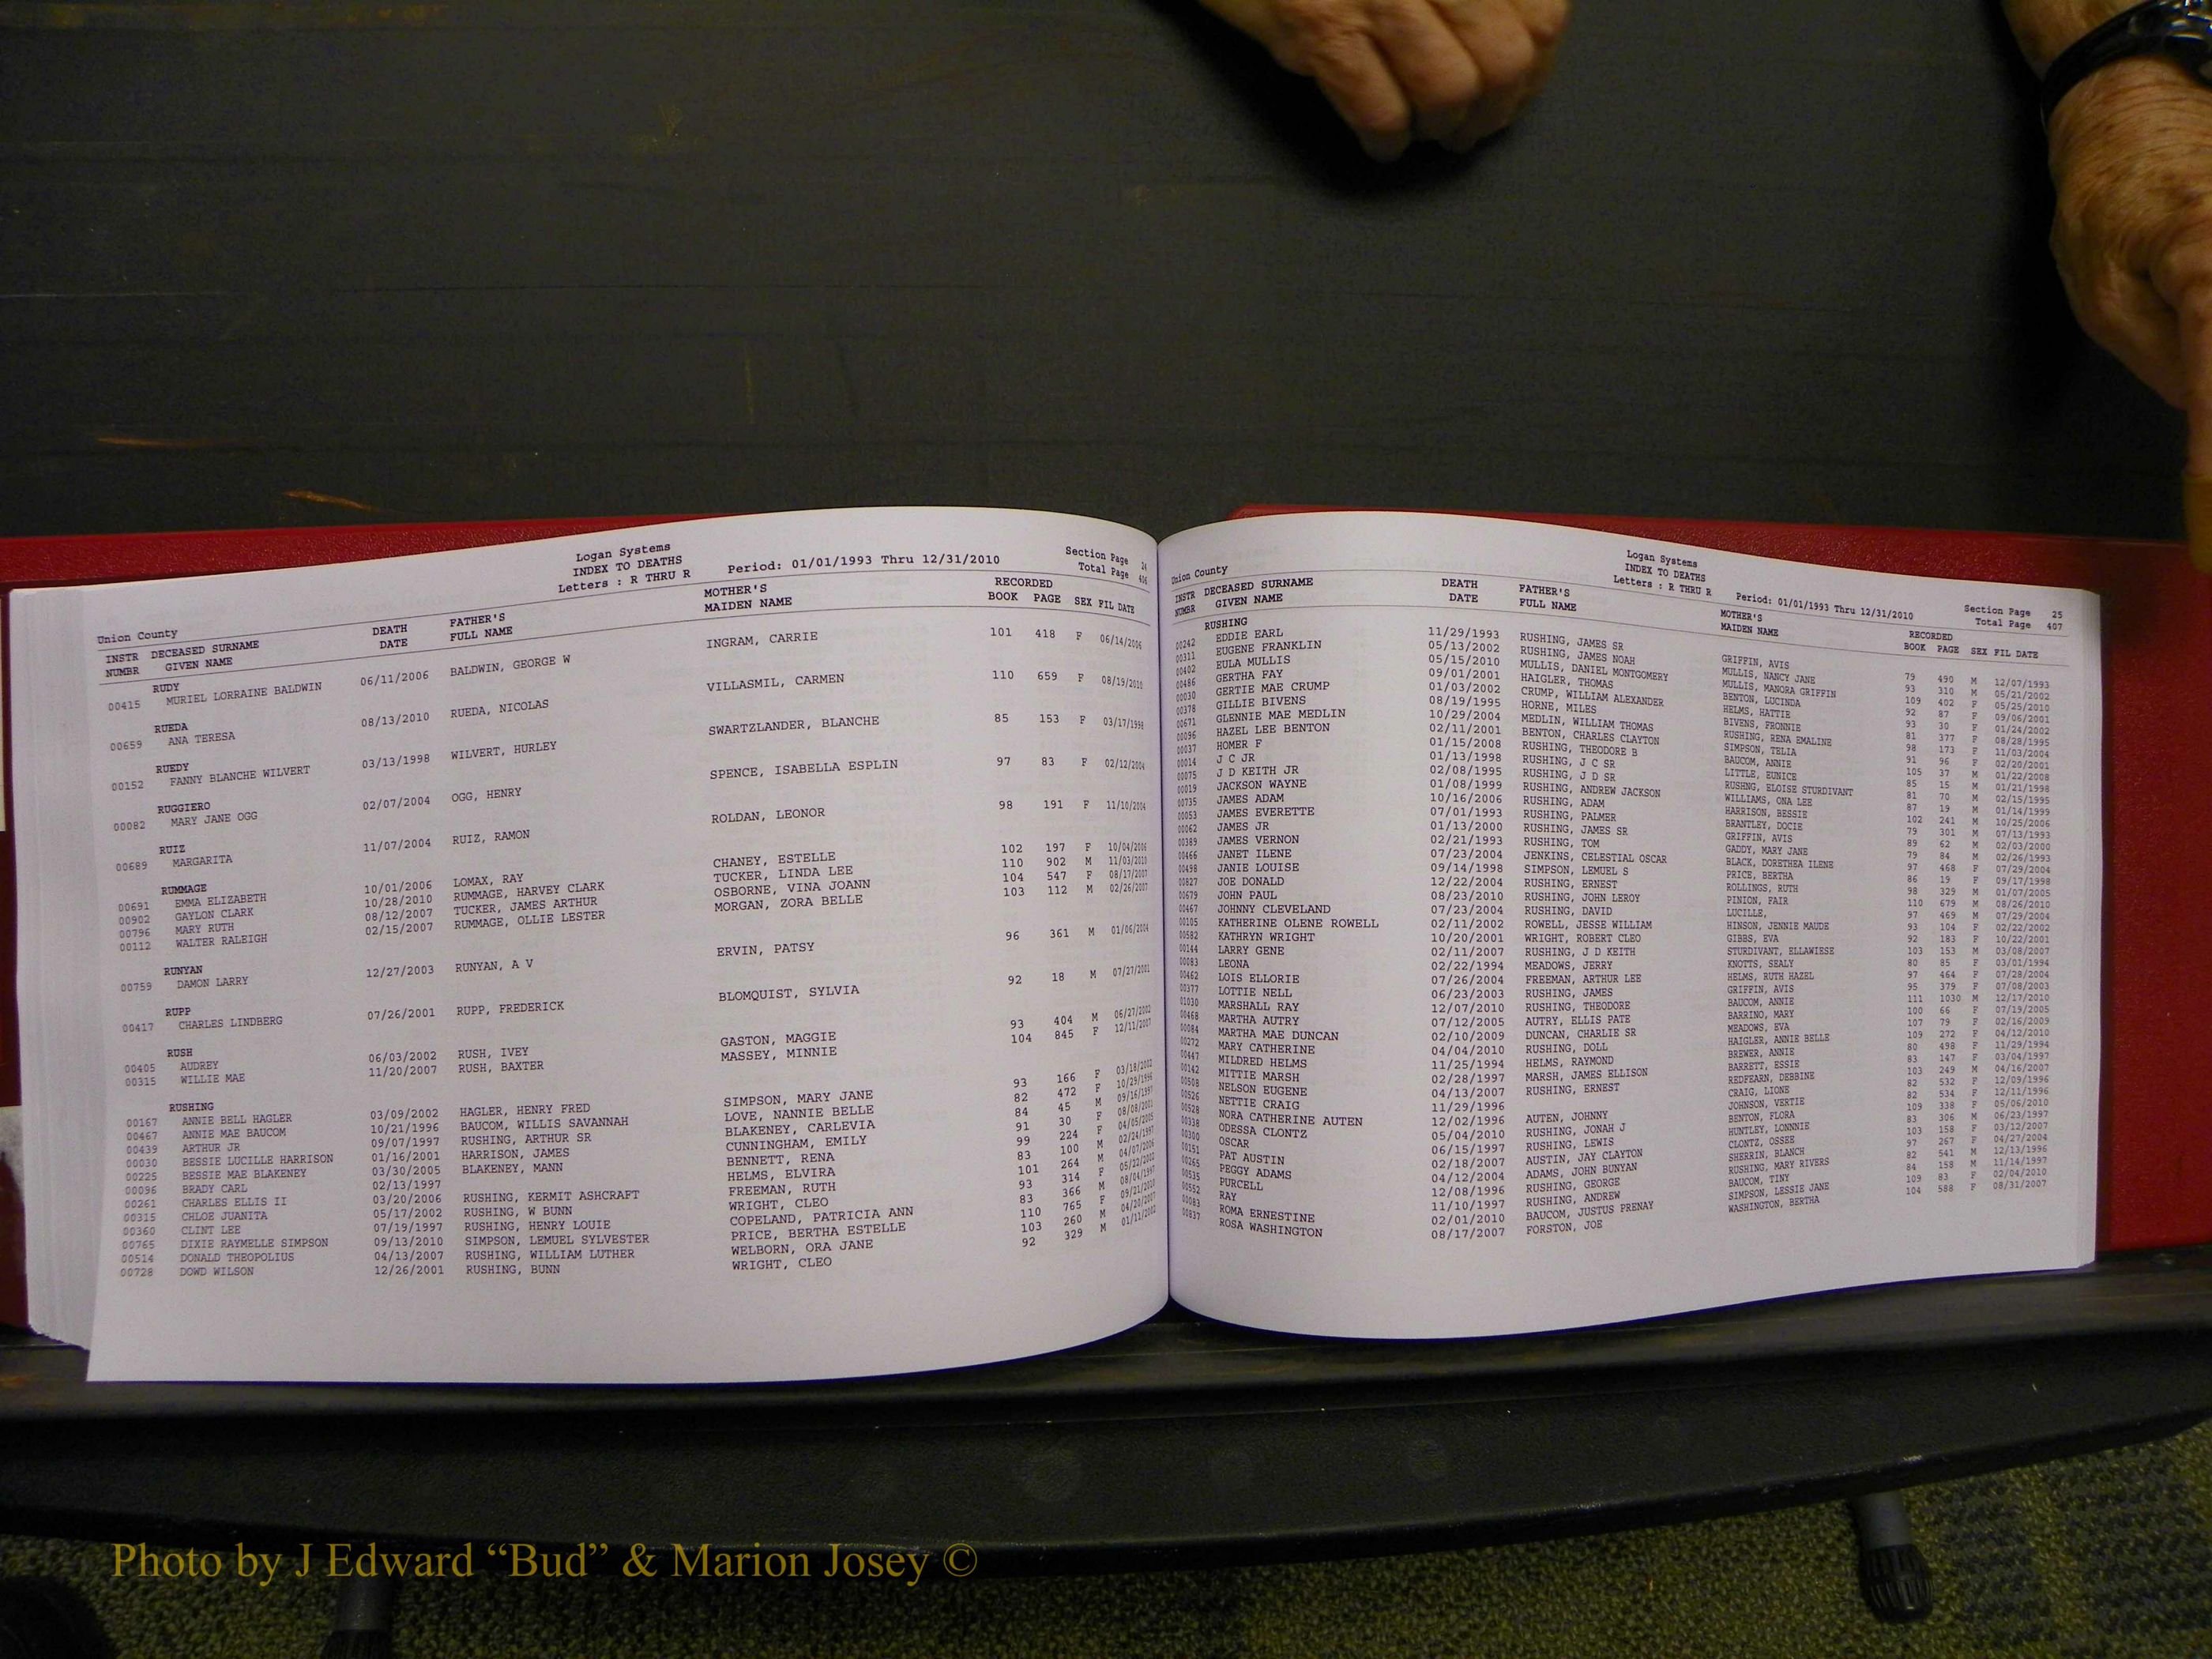 Logan Systems
INDEX TO DEATHS
Letters : R THRU R Period: 01/01/1993 Thru 12/31/2010
Section Page 24
Total Page 406
Union County
INSTR DECEASED SURNAME DEATH FATHER'S MOTHER'S RECORDED
NUMBR GIVEN NAME DATE FULL NAME MAIDEN NAME BOOK PAGE SEX FIL DATE
RUDY
00415 MURIEL LORRAINE BALDWIN 06/11/2006 BALDWIN, GEORGE W INGRAM, CARRIE 101 418 F 06/14/2006
RUEDA
00659 ANA TERESA 08/13/2010 RUEDA, NICOLAS VILLASMIL, CARMEN 110 659 F 08/19/2010
RUEDY
00152 FANNY BLANCHE WILVERT 03/13/1998 WILVERT, HURLEY SWARTZLANDER, BLANCHE 85 153 F 03/17/1998
RUGGIERO
00082 MARY JANE OGG 02/07/2004 OGG, HENRY SPENCE, ISABELLA ESPLIN 97 83 F 02/12/2004
RUIZ
00689 MARGARITA 11/07/2004 RUIZ, RAMON ROLDAN, LEONOR 98 191 F 11/10/2004
RUMMAGE
00691 EMMA ELIZABETH 10/01/2006 LOMAX, RAY CHANEY, ESTELLE 102 197 F 10/04/2006
00902 GAYLON CLARK 10/28/2010 RUMMAGE, HARVEY CLARK TUCKER, LINDA LEE 110 902 M 11/03/2010
00796 MARY RUTH 08/12/2007 TUCKER, JAMES ARTHUR OSBORNE, VINA JOANN 104 547 F 08/17/2007
00112 WALTER RALEIGH 02/15/2007 RUMMAGE, OLLIE LESTER MORGAN, ZORA BELLE 103 112 M 02/26/2007
RUNYAN
00759 DAMON LARRY 12/27/2003 RUNYAN, A V ERVIN, PATSY 96 361 M 01/06/2004
RUPP
00417 CHARLES LINDBERG 07/26/2001 RUPP, FREDERICK BLOMQUIST, SYLVIA 92 18 M 07/27/2001
RUSH
00405 AUDREY 06/03/2002 RUSH, IVEY GASTON, MAGGIE 93 404 M 06/27/2002
00315 WILLIE MAE 11/20/2007 RUSH, BAXTER MASSEY, MINNIE 104 845 F 12/11/2007
RUSHING
00167 ANNIE BELL HAGLER 03/09/2002 HAGLER, HENRY FRED SIMPSON, MARY JANE 93 166 F 03/18/2002
00467 ANNIE MAE BAUCOM 10/21/1996 BAUCOM, WILLIS SAVANNAH LOVE, NANNIE BELLE 82 472 F 10/29/1996
00439 ARTHUR JR 09/07/1997 RUSHING, ARTHUR SR BLAKENEY, CARLEVIA 84 45 M 09/16/1997
00030 BESSIE LUCILLE HARRISON 01/16/2001 HARRISON, JAMES CUNNINGHAM, EMILY 91 30 F
00225 BESSIE MAE BLAKENEY 03/30/2005 BLAKENEY, MANN BENNETT, RENA 99 224 F 04/05/2005
00096 BRADY CARL 02/13/1997 HELMS, ELVIRA 83 100 M 02/24/1997
00261 CHARLES ELLIS II 03/20/2006 RUSHING, KERMIT ASHCRAFT FREEMAN, RUTH 101 264 M 04/07/2006
00315 CHLOE JUANITA 05/17/2002 RUSHING, W BUNN WRIGHT, CLEO 93 314 F 05/22/2002
00360 CLINT LEE 07/19/1997 RUSHING, HENRY LOUIE COPELAND, PATRICIA ANN 83 366 M 08/04/1997
00765 DIXIE RAYMELLE SIMPSON 09/13/2010 SIMPSON, LEMUEL SYLVESTER PRICE, BERTHA ESTELLE 110 765 F 09/21/2010
00514 DONALD THEOPOLIUS 04/13/2007 RUSHING, WILLIAM LUTHER WELBORN, ORA JANE 103 260 M 04/20/2007
00728 DOWD WILSON 12/26/2001 RUSHING, BUNN WRIGHT, CLEO 92 329 M 01/11/2002
Logan Systems
INDEX TO DEATHS
Letters : R THRU R Period: 01/01/1993 Thru 12/31/2010
Section Page 25
Total Page 407
Union County
INSTR DECEASED SURNAME DEATH FATHER'S MOTHER'S RECORDED
NUMBR GIVEN NAME DATE FULL NAME MAIDEN NAME BOOK PAGE SEX FIL DATE
RUSHING
00242 EDDIE EARL 11/29/1993 RUSHING, JAMES SR GRIFFIN, AVIS 79 490 M 12/07/1993
00311 EUGENE FRANKLIN 05/13/2002 RUSHING, JAMES NOAH MULLIS, NANCY JANE 93 310 M 05/21/2002
00402 EULA MULLIS 05/15/2010 MULLIS, DANIEL MONTGOMERY MULLIS, MANORA GRIFFIN 109 402 F 05/25/2010
00486 GERTHA FAY 09/01/2001 HAIGLER, THOMAS BENTON, LUCINDA 92 87 F 09/06/2001
00030 GERTIE MAE CRUMP 01/03/2002 CRUMP, WILLIAM ALEXANDER HELMS, HATTIE 93 30 F 01/24/2002
00378 GILLIE BIVENS 08/19/1995 HORNE, MILES BIVENS, FRONNIE 81 377 F 08/28/1995
00671 GLENNIE MAE MEDLIN 10/29/2004 MEDLIN, WILLIAM THOMAS RUSHING, RENA EMALINE 98 173 F 11/03/2004
00096 HAZEL LEE BENTON 02/11/2001 BENTON, CHARLES CLAYTON SIMPSON, TELIA 91 96 F 02/20/2001
00037 HOMER F 01/15/2008 RUSHING, THEODORE B BAUCOM, ANNIE 105 37 M 01/22/2008
00014 J C JR 01/13/1998 RUSHING, J C SR LITTLE, EUNICE 85 15 M 01/21/1998
00075 J D KEITH JR 02/08/1995 RUSHING, J D SR RUSHNG, ELOISE STURDIVANT 81 70 M 02/15/1995
00019 JACKSON WAYNE 01/08/1999 RUSHING, ANDREW JACKSON WILLIAMS, ONA LEE 87 19 M 01/14/1999
00735 JAMES ADAM 10/16/2006 RUSHING, ADAM HARRISON, BESSIE 102 241 M 10/25/2006
00053 JAMES EVERETTE 07/01/1993 RUSHING, PALMER BRANTLEY, DOCIE 79 301 M 07/13/1993
00062 JAMES JR 01/13/2000 RUSHING, JAMES SR GRIFFIN, AVIS 89 62 M 02/03/2000
00389 JAMES VERNON 02/21/1993 RUSHING, TOM GADDY, MARY JANE 79 84 M 02/26/1993
00466 JANET ILENE 07/23/2004 JENKINS, CELESTIAL OSCAR BLACK, DORETHEA ILENE 97 468 F 07/29/2004
00498 JANIE LOUISE 09/14/1998 SIMPSON, LEMUEL S PRICE, BERTHA 86 19 F 09/17/1998
00827 JOE DONALD 12/22/2004 RUSHING, ERNEST ROLLINGS, RUTH 98 329 M 01/07/2005
00679 JOHN PAUL 08/23/2010 RUSHING, JOHN LEROY PINION, FAIR 110 679 M 08/26/2010
00467 JOHNNY CLEVELAND 07/23/2004 RUSHING, DAVID LUCILLE, 97 469 M 07/29/2004
00105 KATHERINE OLENE ROWELL 02/11/2002 ROWELL, JESSE WILLIAM HINSON, JENNIE MAUDE 93 104 F 02/22/2002
00582 KATHRYN WRIGHT 10/20/2001 WRIGHT, ROBERT CLEO GIBBS, EVA 92 183 F 10/22/2001
00144 LARRY GENE 02/11/2007 RUSHING, J D KEITH STURDIVANT, ELLAWIESE 103 153 M 03/08/2007
00083 LEONA 02/22/1994 MEADOWS, JERRY KNOTTS, SEALY 80 85 F 03/01/1994
00462 LOIS ELLORIE 07/26/2004 FREEMAN, ARTHUR LEE HELMS, RUTH HAZEL 97 464 F 07/28/2004
00377 LOTTIE NELL 06/23/2003 RUSHING, JAMES GRIFFIN, AVIS 95 379 F 07/08/2003
01030 MARSHALL RAY 12/07/2010 RUSHING, THEODORE BAUCOM, ANNIE 111 1030 M 12/17/2010
00468 MARTHA AUTRY 07/12/2005 AUTRY, ELLIS PATE BARRINO, MARY 100 66 F 07/19/2005
00084 MARTHA MAE DUNCAN 02/10/2009 DUNCAN, CHARLIE SR MEADOWS, EVA 107 79 F 02/16/2009
00272 MARY CATHERINE 04/04/2010 RUSHING, DOLL HAIGLER, ANNIE BELLE 109 272 F 04/12/2010
00447 MILDRED HELMS 11/25/1994 HELMS, RAYMOND BREWER, ANNIE 80 498 F 11/29/1994
00142 MITTIE MARSH 02/28/1997 MARSH, JAMES ELLISON BARRETT, ESSIE 83 147 F 03/04/1997
00508 NELSON EUGENE 04/13/2007 RUSHING, ERNEST REDFEARN, DEBBINE 103 249 M 04/16/2007
00526 NETTIE CRAIG 11/29/1996 CRAIG, LIONE 82 532 F 12/09/1996
00528 NORA CATHERINE AUTEN 12/02/1996 AUTEN, JOHNNY JOHNSON, VERTIE 82 534 F 12/11/1996
00338 ODESSA CLONTZ 05/04/2010 RUSHING, JONAH J BENTON, FLORA 109 338 F 05/06/2010
00300 OSCAR 06/15/1997 RUSHING, LEWIS HUNTLEY, LONNNIE 83 306 M 06/23/1997
00151 PAT AUSTIN 02/18/2007 AUSTIN, JAY CLAYTON CLONTZ, OSSEE 103 158 F 03/12/2007
00265 PEGGY ADAMS 04/12/2004 ADAMS, JOHN BUNYAN SHERRIN, BLANCH 97 267 F 04/27/2004
00535 PURCELL 12/08/1996 RUSHING, GEORGE RUSHING, MARY RIVERS 82 541 M 12/13/1996
00552 RAY 11/10/1997 RUSHING, ANDREW BAUCOM, TINY 84 158 M 11/14/1997
00083 ROMA ERNESTINE 02/01/2010 BAUCOM, JUSTUS PRENAY SIMPSON, LESSIE JANE 109 83 F 02/04/2010
00837 ROSA WASHINGTON 08/17/2007 FORSTON, JOE WASHINGTON, BERTHA 104 588 F 08/31/2007
Photo by J Edward “Bud” & Marion Josey ©